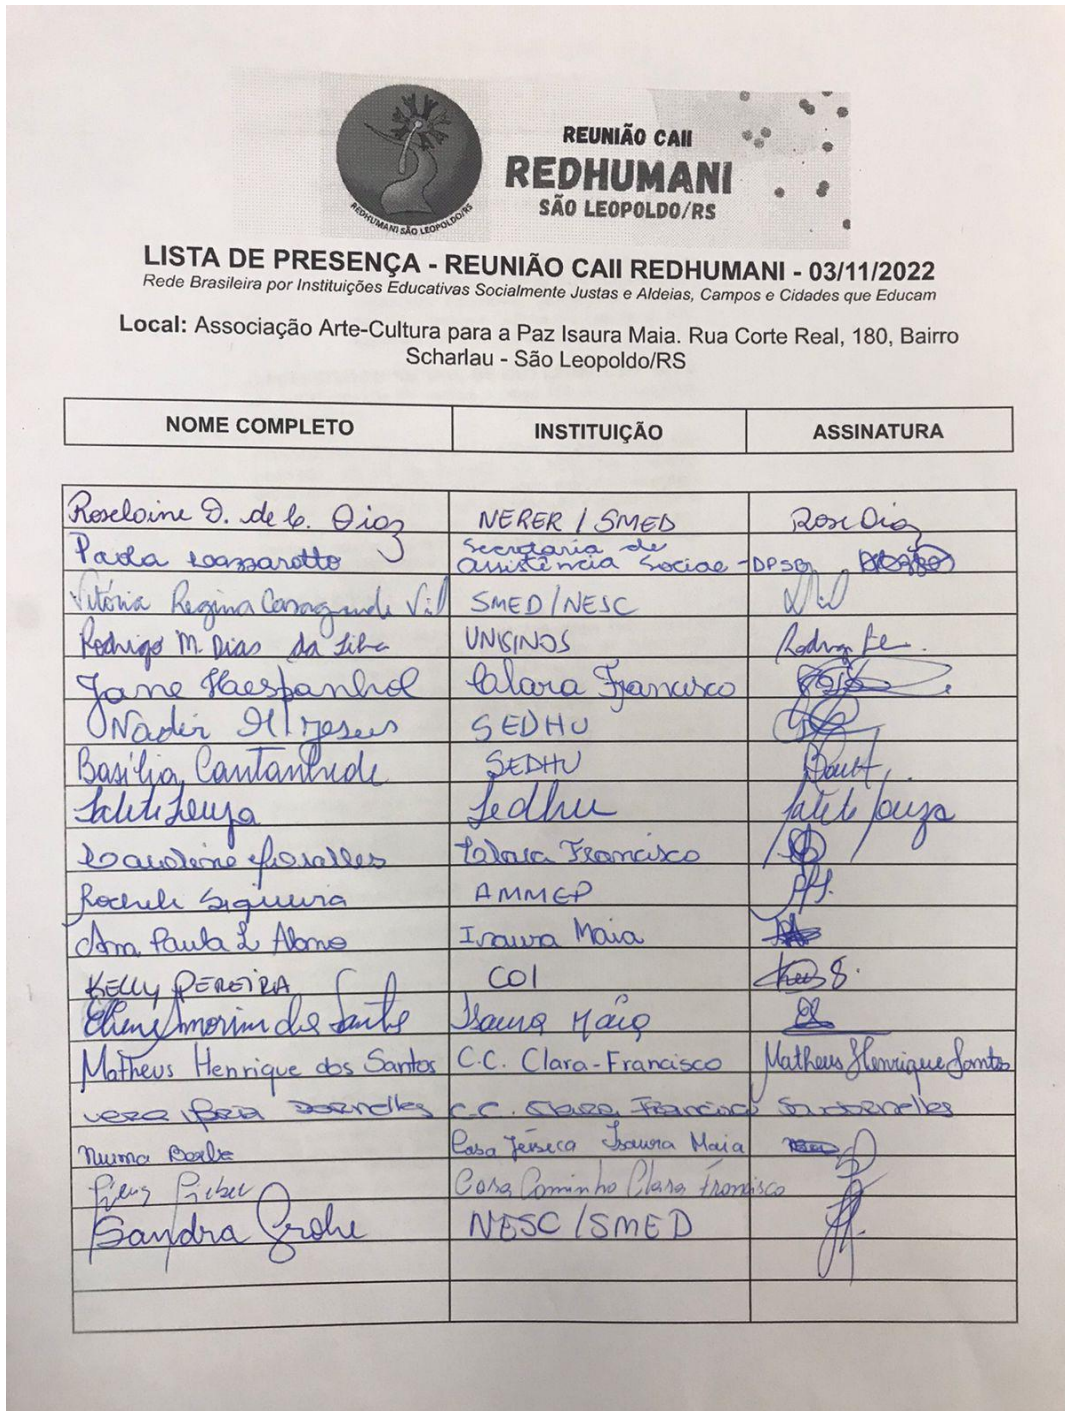 REUNIÃO CAII
REDHUMANI
SÃO LEOPOLDO/RS
REDHUMANI SÃO LEOPOLDO/RS
LISTA DE PRESENÇA - REUNIÃO CAII REDHUMANI - 03/11/2022
Rede Brasileira por Instituições Educativas Socialmente Justas e Aldeias, Campos e Cidades que Educam
Local: Associação Arte-Cultura para a Paz Isaura Maia. Rua Corte Real, 180, Bairro
Scharlau - São Leopoldo/RS
NOME COMPLETO INSTITUIÇÃO ASSINATURA
Roselaine D. de C. Diaz NERER / SMED Rose Diaz
Paola Lazzarotto Secretaria de
Assistência Social - DPSB
Vitória Regina Casagrande SMED/NESC
Rodrigo M. Dias da Silva UNISINOS
Jane Haespanhol Clara Francisco
Nadir SEDHU
Basilia Cantanhede SEDHU
Salete Souza Sedhu Salete Souza
Clara Francisco
Rocheli Siqueira AMMEP
Ana Paula L Isaura Maia
KELLY PEREIRA COI
Amorim dos Santos Isaura Maia
Matheus Henrique dos Santos C.C. Clara-Francisco Matheus Henrique Santos
Vera Dornelles C.C. Clara Francisco
Casa Isaura Maia
Casa Caminho Clara Francisco
Sandra Grohe NESC/SMED